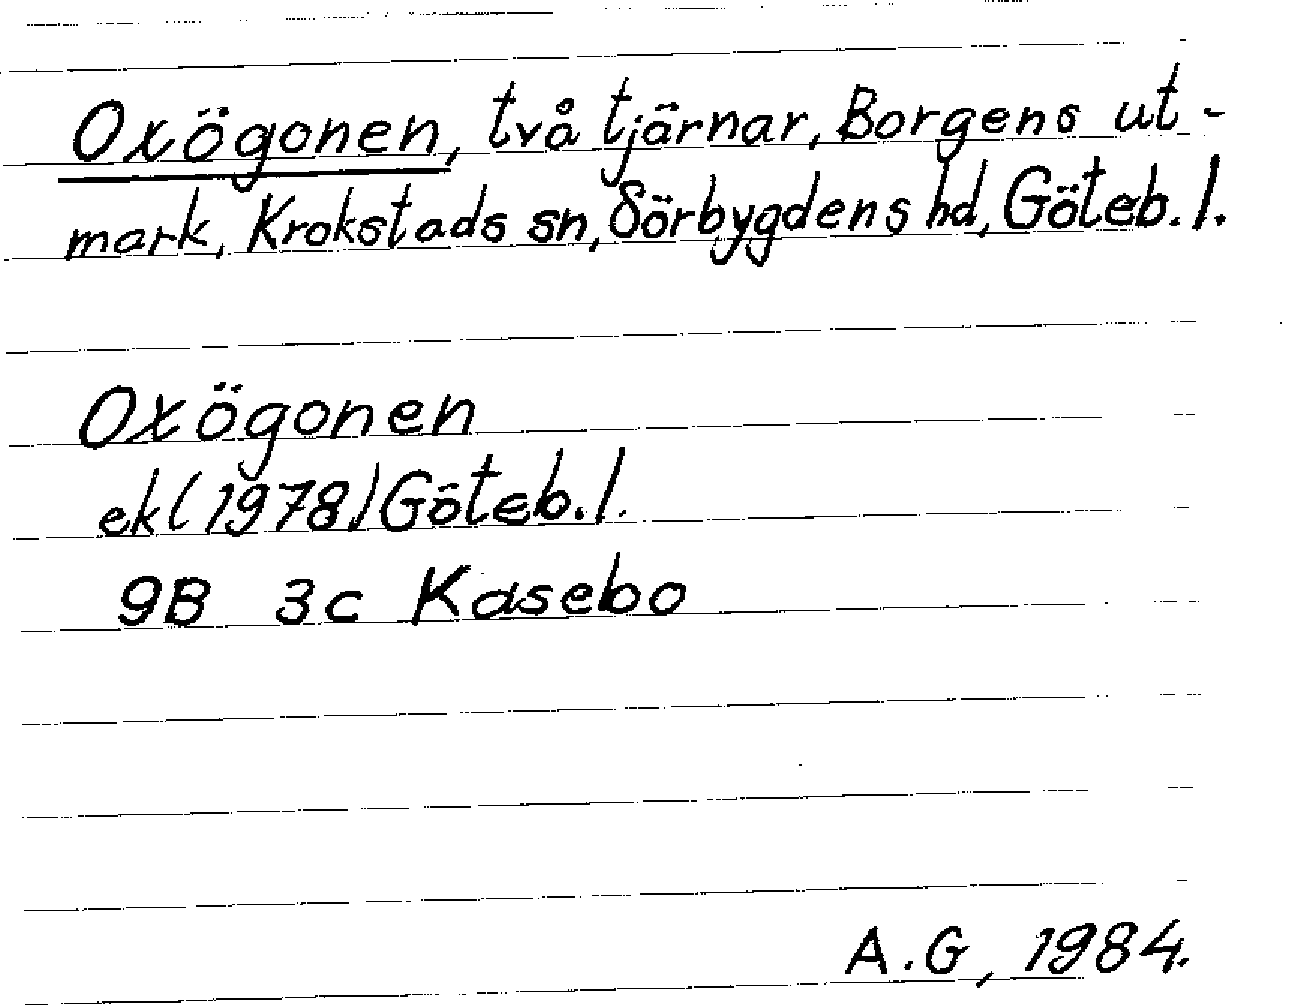 Oxögonen, två tjärnar, Borgens ut-
mark, Krokstads sn, Sörbygdens hd, Göteb. l.
Oxögonen
ek (1978) Göteb. l.
9B 3c Kasebo
A.G, 1984.